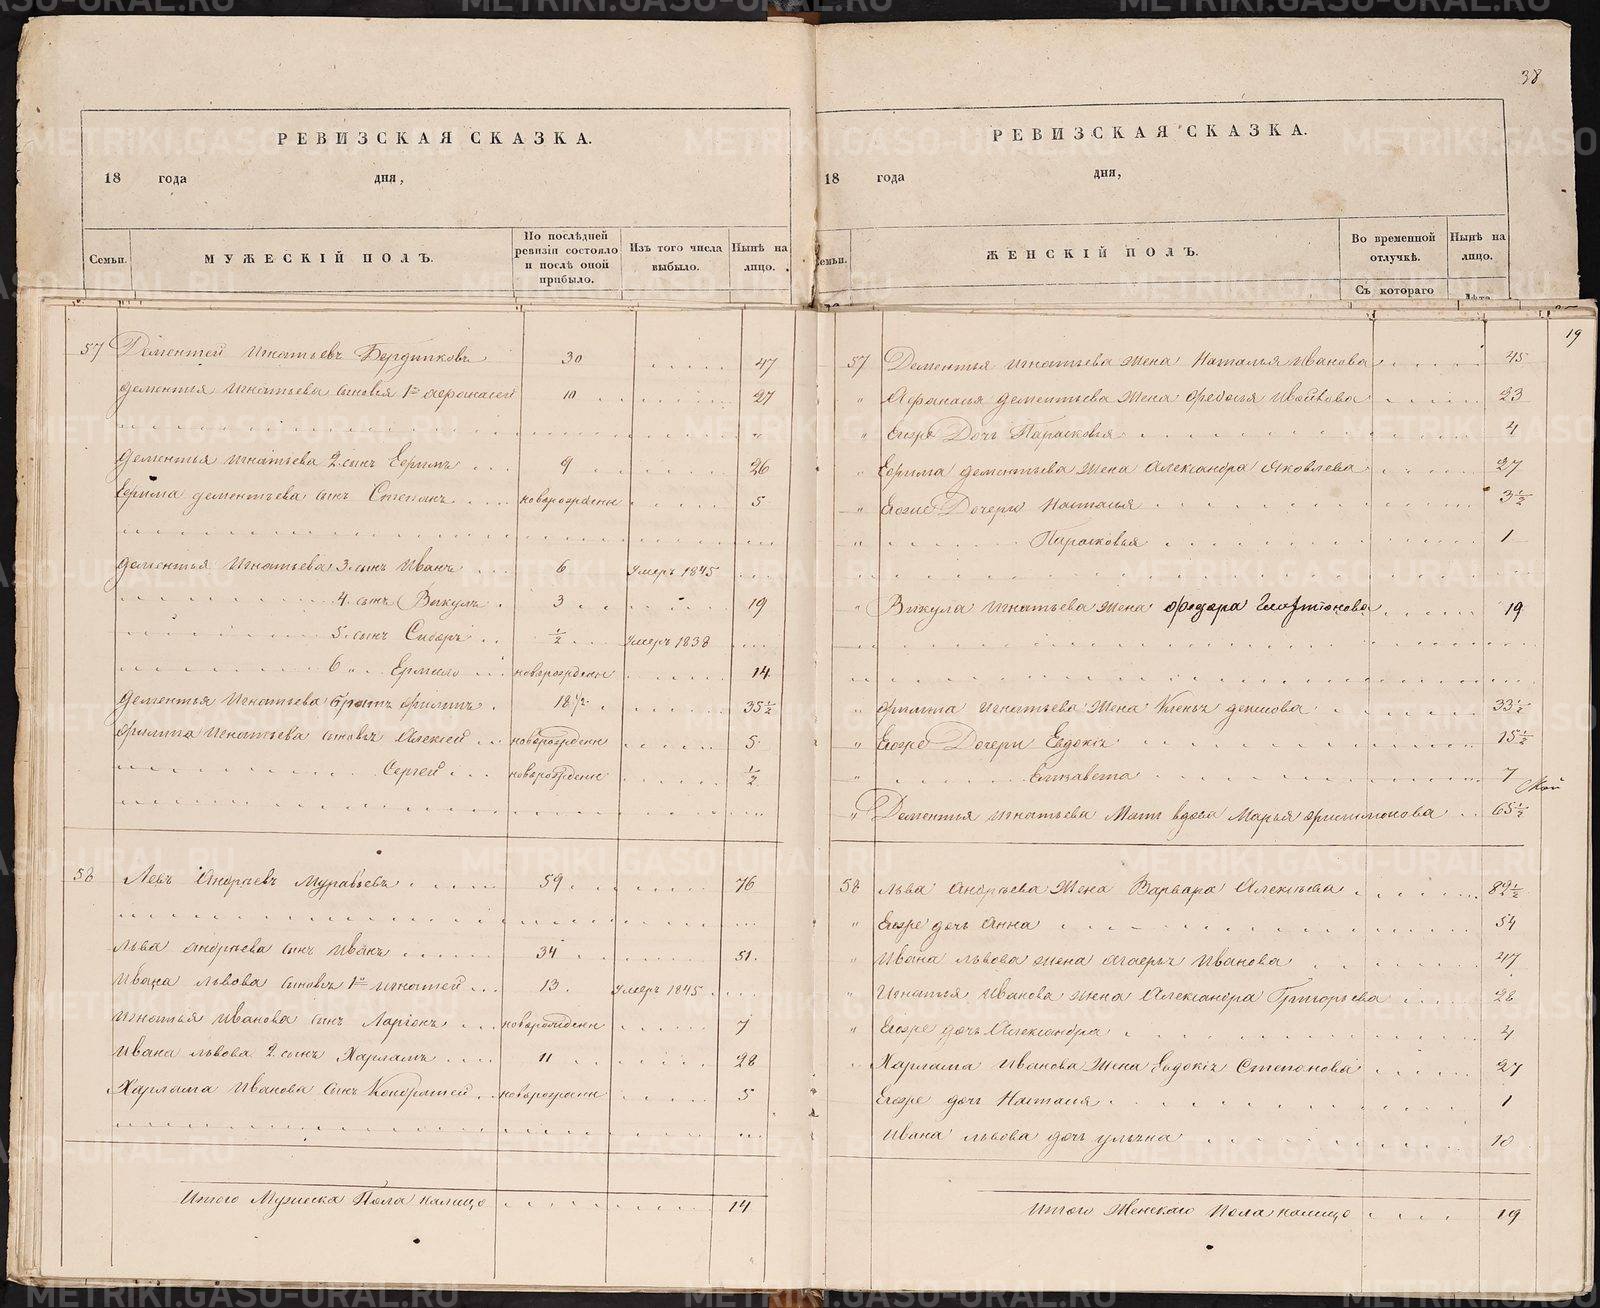 38
РЕВИЗСКАЯ СКАЗКА.
18 года дня,
Семьи. МУЖЕСКІЙ ПОЛЪ. По послѣдней ревизіи состояло и послѣ оной прибыло. Изъ того числа выбыло. Нынѣ на лицо.
57 Дементей Игнатьевъ Бердниковъ 30 47
Дементья Игнатьева сыновья 1й Афанасей 10 27
Дементья Игнатьева 2 сынъ Ефримъ 9 26
Ефрима Дементьева сынъ Степанъ новорожденн 5
Дементья Игнатьева 3 сынъ Иванъ 6 умеръ 1845
4 сынъ Викулъ 3 19
5 сынъ Сидоръ ½ умеръ 1838
6 " Ермило новорожденн 14
Дементья Игнатьева братъ Филипъ 18½ 35½
Филипа Игнатьева сыновья Алексей новорожденн 5
Сергей новорожденн ½
58 Левъ Андреевъ Муравьевъ 59 76
Льва Андреева сынъ Иванъ 34 51
Ивана Львова сыновья 1й Игнатей 13 умеръ 1845
Игнатья Иванова сынъ Ларіонъ новорожденн 7
Ивана Львова 2 сынъ Харламъ 11 28
Харлама Иванова сынъ Кондратей новорожденн 5
Итого Мужеска Пола налицо 14
РЕВИЗСКАЯ СКАЗКА.
18 года дня,
Семьи. ЖЕНСКІЙ ПОЛЪ. Во временной отлучкѣ. Нынѣ на лицо.
Съ котораго Лѣта
19
57 Дементья Игнатьева жена Наталья Иванова 45
" Афанасья Дементьева жена Федосья 23
" Егоже Дочь Парасковья 4
" Ефрима Дементьева жена Александра Яковлева 27
" Егоже Дочери Наталья 3½
" Парасковья 1
" Викула Игнатьева жена Федора 19
" Филипа Игнатьева жена 33½
" Егоже Дочери Евдокія 15½
" Елизавета 7
" Дементья Игнатьева Мать вдова Марья 65½
58 Льва Андреева жена Варвара Алексѣева 82½
" Егоже дочь Анна 54
" Ивана Львова жена Агафья Иванова 47
" Игнатья Иванова жена Александра Григорьева 28
" Егоже дочь Александра 4
" Харлама Иванова жена Евдокія Степанова 27
Егоже дочь Наталья 1
Ивана Львова дочь Ульяна 10
Итого Женскаго Пола налицо 19
METRIKI.GASO-URAL.RU